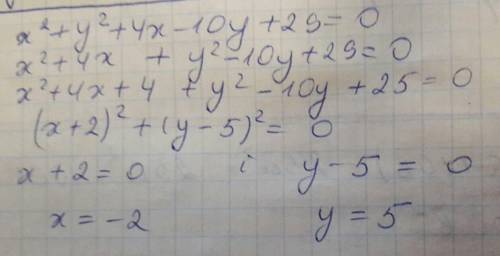 x²+y²+4x-10y+29=0
x²+4x + y²-10y+29=0
x²+4x+4 +y²-10y+25=0
(x+2)²+(y-5)²= 0
x+2=0 i y-5=0
x=-2 y=5